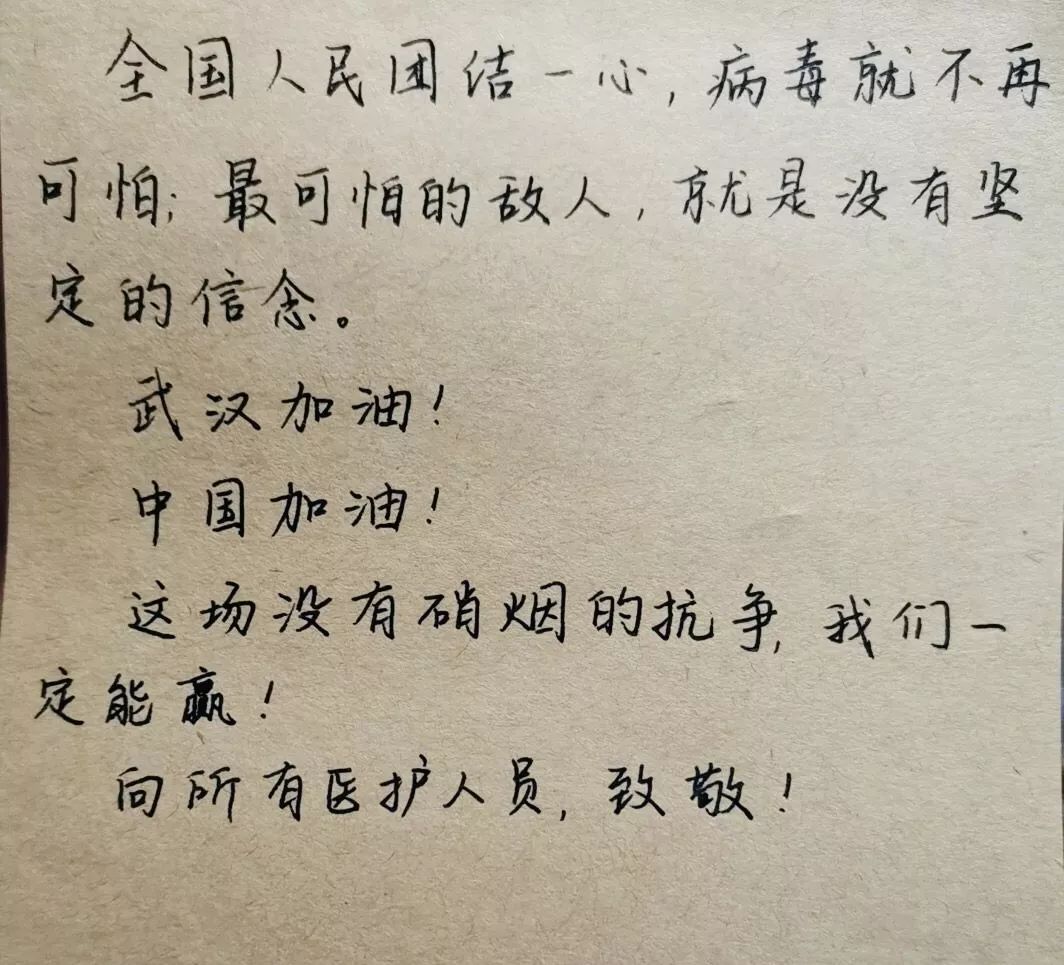 全国人民团结一心,病毒就不再
可怕;最可怕的敌人,就是没有坚
定的信念。
武汉加油!
中国加油!
这场没有硝烟的抗争,我们一
定能赢!
向所有医护人员,致敬!